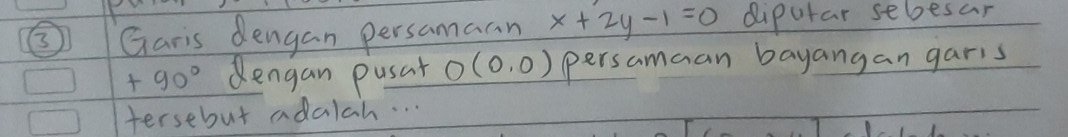 ③ Garis dengan persamaan x + 2y - 1 = 0 diputar sebesar
+ 90° dengan pusat O(0,0) persamaan bayangan garis
tersebut adalah ...